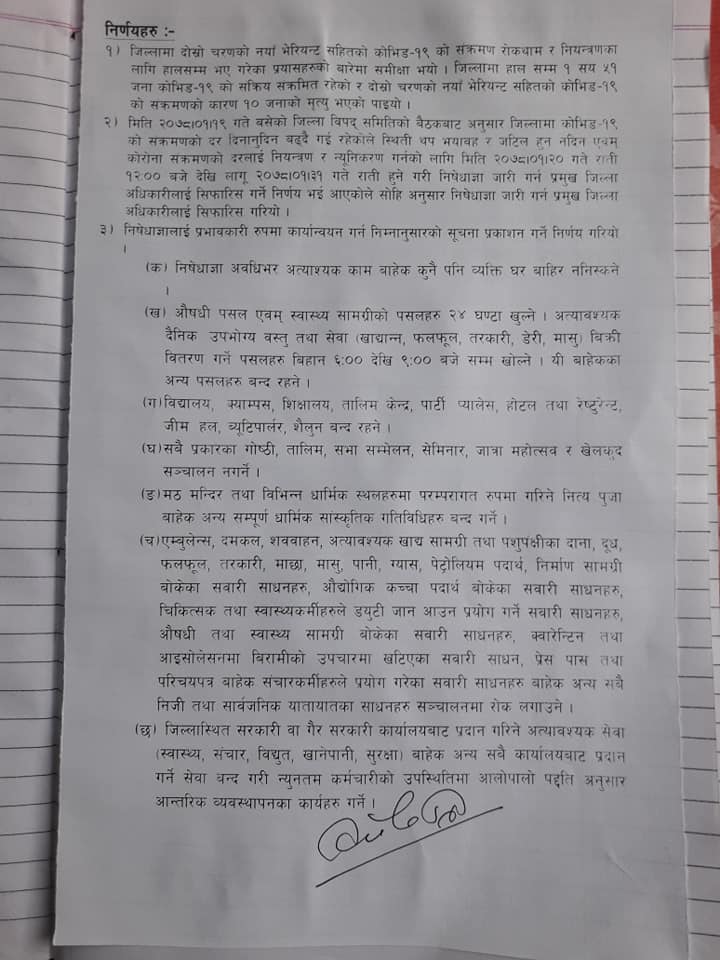 निर्णयहरु :-
१) जिल्लामा दोस्रो चरणको नयाँ भेरियन्ट सहितको कोभिड-१९ को संक्रमण रोकथाम र नियन्त्रणका
लागि हालसम्म भए गरेका प्रयासहरुको बारेमा समीक्षा भयो । जिल्लामा हाल सम्म १ सय ५१
जना कोभिड-१९ को सक्रिय संक्रमित रहेको र दोस्रो चरणको नयाँ भेरियन्ट सहितको कोभिड-१९
को संक्रमणको कारण १० जनाको मृत्यु भएको पाइयो ।
२) मिति २०७८।०१।१९ गते बसेको जिल्ला विपद् समितिको बैठकबाट अनुसार जिल्लामा कोभिड-१९
को संक्रमणको दर दिनानुदिन बढ्दै गई रहेकोले स्थिती थप भयावह र जटिल हुन नदिन एवम्
कोरोना संक्रमणको दरलाई नियन्त्रण र न्यूनिकरण गर्नको लागि मिति २०७८।०१।२० गते राती
१२:०० बजे देखि लागू २०७८।०१।३१ गते राती हुने गरी निषेधाज्ञा जारी गर्न प्रमुख जिल्ला
अधिकारीलाई सिफारिस गर्ने निर्णय भई आएकोले सोहि अनुसार निषेधाज्ञा जारी गर्न प्रमुख जिल्ला
अधिकारीलाई सिफारिस गरियो ।
३) निषेधाज्ञालाई प्रभावकारी रुपमा कार्यान्वयन गर्न निम्नानुसारको सूचना प्रकाशन गर्ने निर्णय गरियो
।
(क) निषेधाज्ञा अवधिभर अत्याश्यक काम बाहेक कुनै पनि व्यक्ति घर बाहिर ननिस्कने
।
(ख) औषधी पसल एवम् स्वास्थ्य सामग्रीको पसलहरु २४ घण्टा खुल्ने । अत्यावश्यक
दैनिक उपभोग्य वस्तु तथा सेवा (खाद्यान्न, फलफूल, तरकारी, डेरी, मासु) बिक्री
वितरण गर्ने पसलहरु बिहान ६:०० देखि ९:०० बजे सम्म खोल्ने । यी बाहेकका
अन्य पसलहरु बन्द रहने ।
(ग) विद्यालय, क्याम्पस, शिक्षालय, तालिम केन्द्र, पार्टी प्यालेस, होटल तथा रेष्टुरेन्ट,
जीम हल, ब्यूटिपार्लर, शैलुन बन्द रहने ।
(घ) सबै प्रकारका गोष्ठी, तालिम, सभा सम्मेलन, सेमिनार, जात्रा महोत्सव र खेलकुद
सञ्चालन नगर्ने ।
(ङ) मठ मन्दिर तथा विभिन्न धार्मिक स्थलहरुमा परम्परागत रुपमा गरिने नित्य पुजा
बाहेक अन्य सम्पूर्ण धार्मिक सांस्कृतिक गतिविधिहरु बन्द गर्ने ।
(च) एम्बुलेन्स, दमकल, शववाहन, अत्यावश्यक खाद्य सामग्री तथा पशुपंक्षीका दाना, दूध,
फलफूल, तरकारी, माछा, मासु, पानी, ग्यास, पेट्रोलियम पदार्थ, निर्माण सामग्री
बोकेका सवारी साधनहरु, औद्योगिक कच्चा पदार्थ बोकेका सवारी साधनहरु,
चिकित्सक तथा स्वास्थ्यकर्मीहरुले डयुटी जान आउन प्रयोग गर्ने सवारी साधनहरु,
औषधी तथा स्वास्थ्य सामाग्री बोकेका सवारी साधनहरु, क्वारेन्टिन तथा
आइसोलेसनमा बिरामीको उपचारमा खटिएका सवारी साधन, प्रेस पास तथा
परिचयपत्र बाहेक संचारकर्मीहरुले प्रयोग गरेका सवारी साधनहरु बाहेक अन्य सबै
निजी तथा सार्वजनिक यातायातका साधनहरु सञ्चालनमा रोक लगाउने ।
(छ) जिल्लास्थित सरकारी वा गैर सरकारी कार्यालयबाट प्रदान गरिने अत्यावश्यक सेवा
(स्वास्थ्य, संचार, विद्युत, खानेपानी, सुरक्षा) बाहेक अन्य सबै कार्यालयबाट प्रदान
गर्ने सेवा बन्द गरी न्युनतम कर्मचारीको उपस्थितिमा आलोपालो पद्दति अनुसार
आन्तरिक व्यवस्थापनका कार्यहरु गर्ने ।